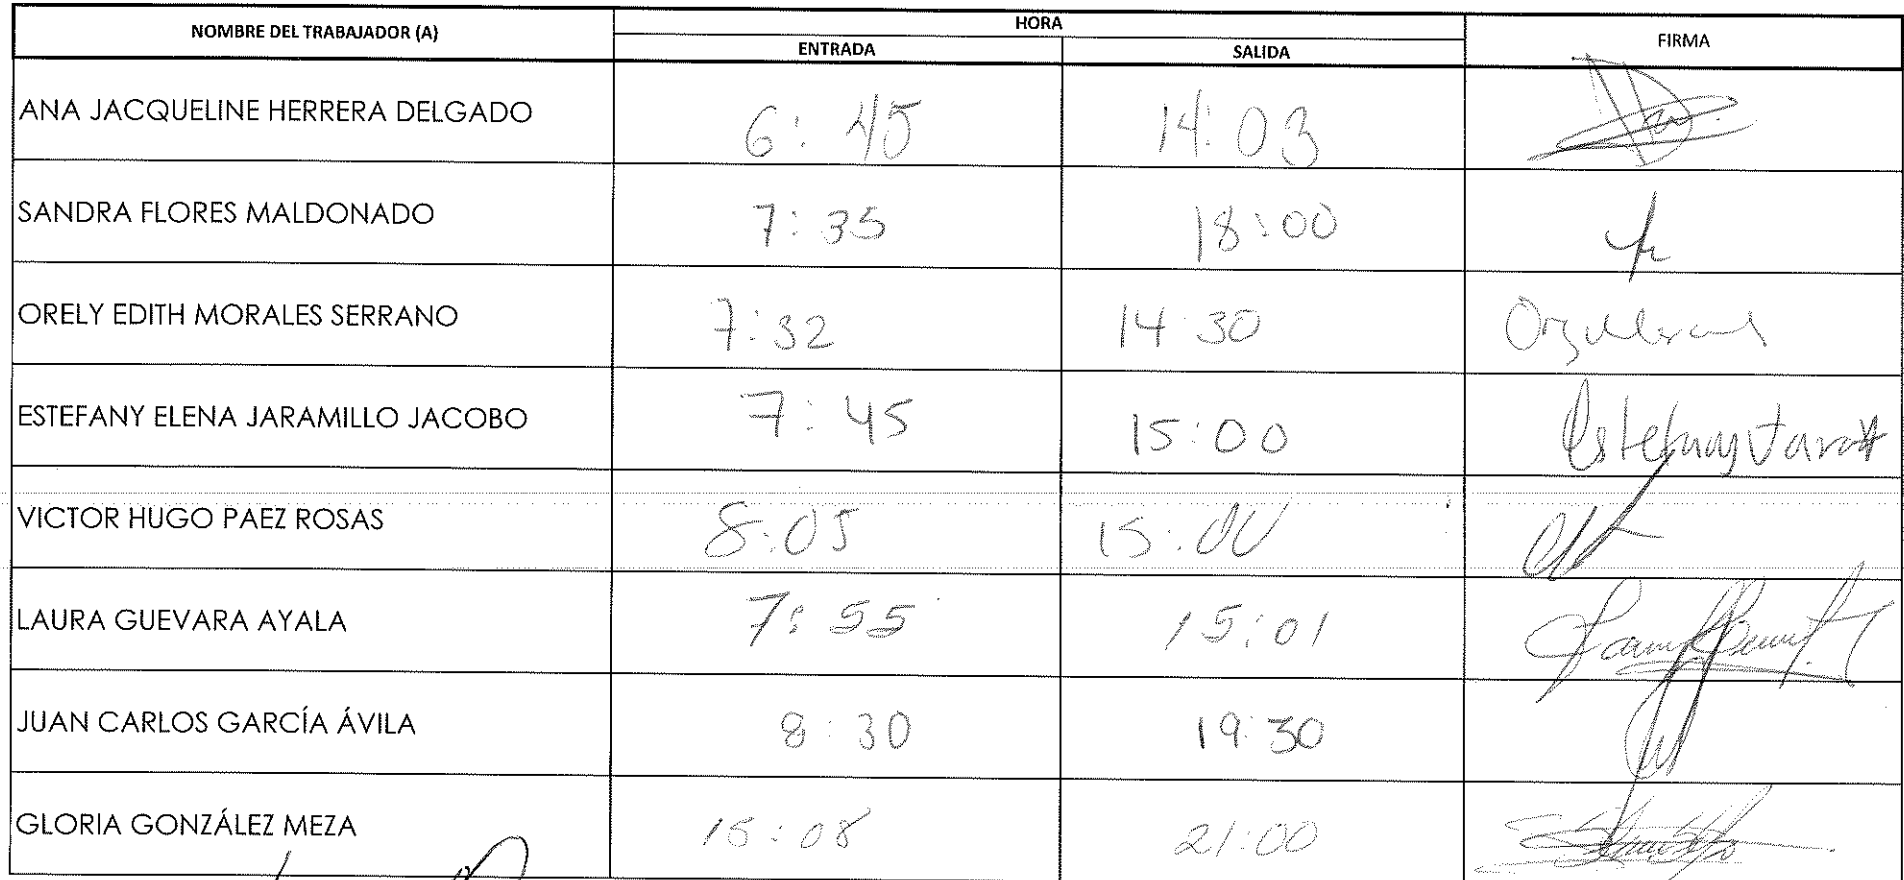 NOMBRE DEL TRABAJADOR (A) HORA FIRMA
ENTRADA SALIDA
ANA JACQUELINE HERRERA DELGADO 6:45 14:03
SANDRA FLORES MALDONADO 7:35 18:00
ORELY EDITH MORALES SERRANO 7:32 14:30
ESTEFANY ELENA JARAMILLO JACOBO 7:45 15:00
VICTOR HUGO PAEZ ROSAS 8:05 15:00
LAURA GUEVARA AYALA 7:55 15:01
JUAN CARLOS GARCÍA ÁVILA 8:30 19:30
GLORIA GONZÁLEZ MEZA 15:08 21:00